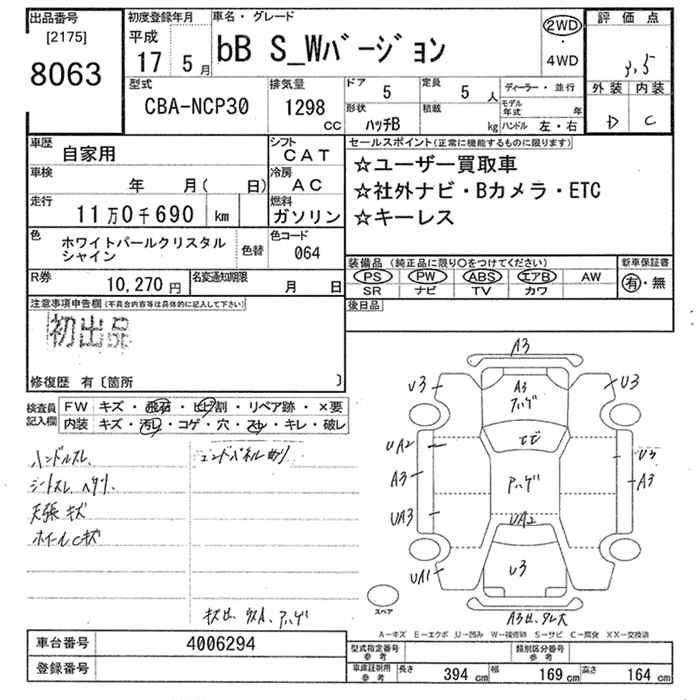 出品番号
[2175]
8063
初度登録年月
平成
17 5月
車名・グレード
bB S_Wバージョン
2WD
・
4WD
評価点
3.5
外装 内装
D C
型式
CBA-NCP30
排気量
1298
CC
ドア
5
定員
5 人
形状
ハッチB
積載
kg
ディーラー・並行
モデル年式 年
ハンドル 左・右
車歴
自家用
シフト
CAT
車検
年 月( 日)
冷房
AC
走行
11万0千690 km
燃料
ガソリン
色
ホワイトパールクリスタル
シャイン
色替
色コード
064
R券
10,270円
名変通知期限
月 日
セールスポイント(正常に機能するものに限ります)
☆ユーザー買取車
☆社外ナビ・Bカメラ・ETC
☆キーレス
装備品 (純正品に限り○をつけてください)
PS PW ABS エアB AW
SR ナビ TV カワ
新車保証書
有・無
後日品
注意事項申告欄(不具合内容等は具体的に記入して下さい)
初出品
修復歴 有〔箇所 〕
検査員
記入欄
FW キズ・飛石・ヒビ割・リペア跡・×要
内装 キズ・汚レ・コゲ・穴・スレ・キレ・破レ
ハンドルスレ
シートスレ ヘタリ
天張キズ
ホイールCキズ
エンドパネル曲リ
A3
U3
A3
ハゲ
U3
UA2
エビ
U3
A3
ハゲ
A3
UA3
UA2
UA1
U3
スペア
A-キズ E-エクボ U-凹み W-補修跡 S-サビ C-腐食 XX-交換済
車台番号 4006294
登録番号
型式指定番号
参考
類別区分番号
参考
車庫証明用
参考
長さ 394 cm 幅 169 cm 高さ 164 cm